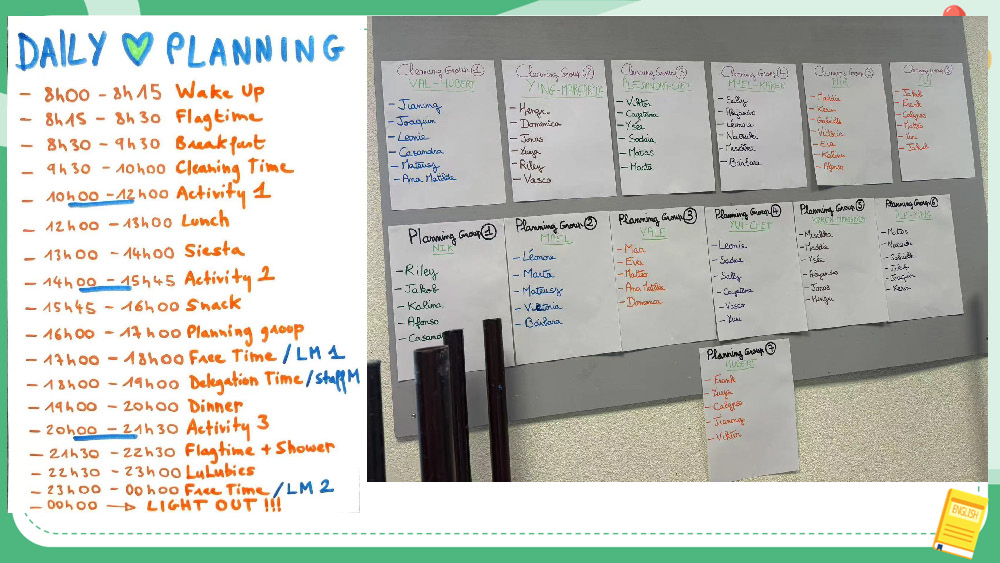 DAILY PLANNING
- 8h00 - 8h15 Wake Up
- 8h15 - 8h30 Flagtime
- 8h30 - 9h30 Breakfast
- 9h30 - 10h00 Cleaning Time
- 10h00 - 12h00 Activity 1
- 12h00 - 13h00 Lunch
- 13h00 - 14h00 Siesta
- 14h00 - 15h45 Activity 2
- 15h45 - 16h00 Snack
- 16h00 - 17h00 Planning group
- 17h00 - 18h00 Free Time / LM 1
- 18h00 - 19h00 Delegation Time / Staff M
- 19h00 - 20h00 Dinner
- 20h00 - 21h30 Activity 3
- 21h30 - 22h30 Flagtime + Shower
- 22h30 - 23h00 Lulubies
- 23h00 - 00h00 Free Time / LM 2
- 00h00 → LIGHT OUT !!!
Cleaning Group 1
- Jianing
- Joaquin
- Leonie
- Casandra
- Mateusz
- Ana Matilde
Cleaning Group 2
- Hengu
- Domenica
- Jonas
- Yuya
- Riley
- Vasco
Cleaning Group 3
- Viktor
- Capetina
- Ysée
- Matias
- Marta
Cleaning Group 4
- Sally
- Alejandro
- Léonore
- Bárbara
Cleaning Group 5
- Kerin
- Gabriella
- Victoria
- Eva
- Kalina
- Afonso
- Jakob
- Frank
- Calypso
Planning Group 1
NIK
- Riley
- Jakob
- Kalina
- Afonso
- Casand
Planning Group 2
- Léonore
- Marta
- Mateusz
- Victoria
- Bárbara
Planning Group 3
- Mao
- Eva
- Matteo
- Ana Matilde
- Domenica
Planning Group 4
- Leonie
- Sally
- Vasco
- Yuni
Planning Group 5
- Ysée
- Alejandro
- Jonas
- Hengu
Planning Group 6
- Joaquin
- Kerin
Planning Group 7
- Frank
- Yuya
- Calypso
- Jianing
- Viktor
ENGLISH